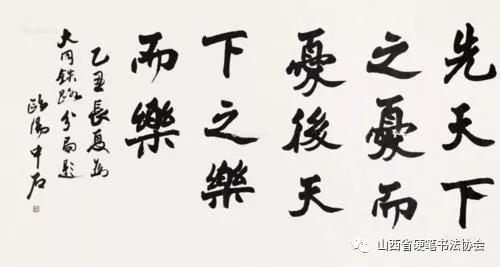 先天下
之憂而
憂後天
下之樂
而樂
乙丑長夏為
大同鉄路分局題
歐陽中石
山西省硬笔书法协会